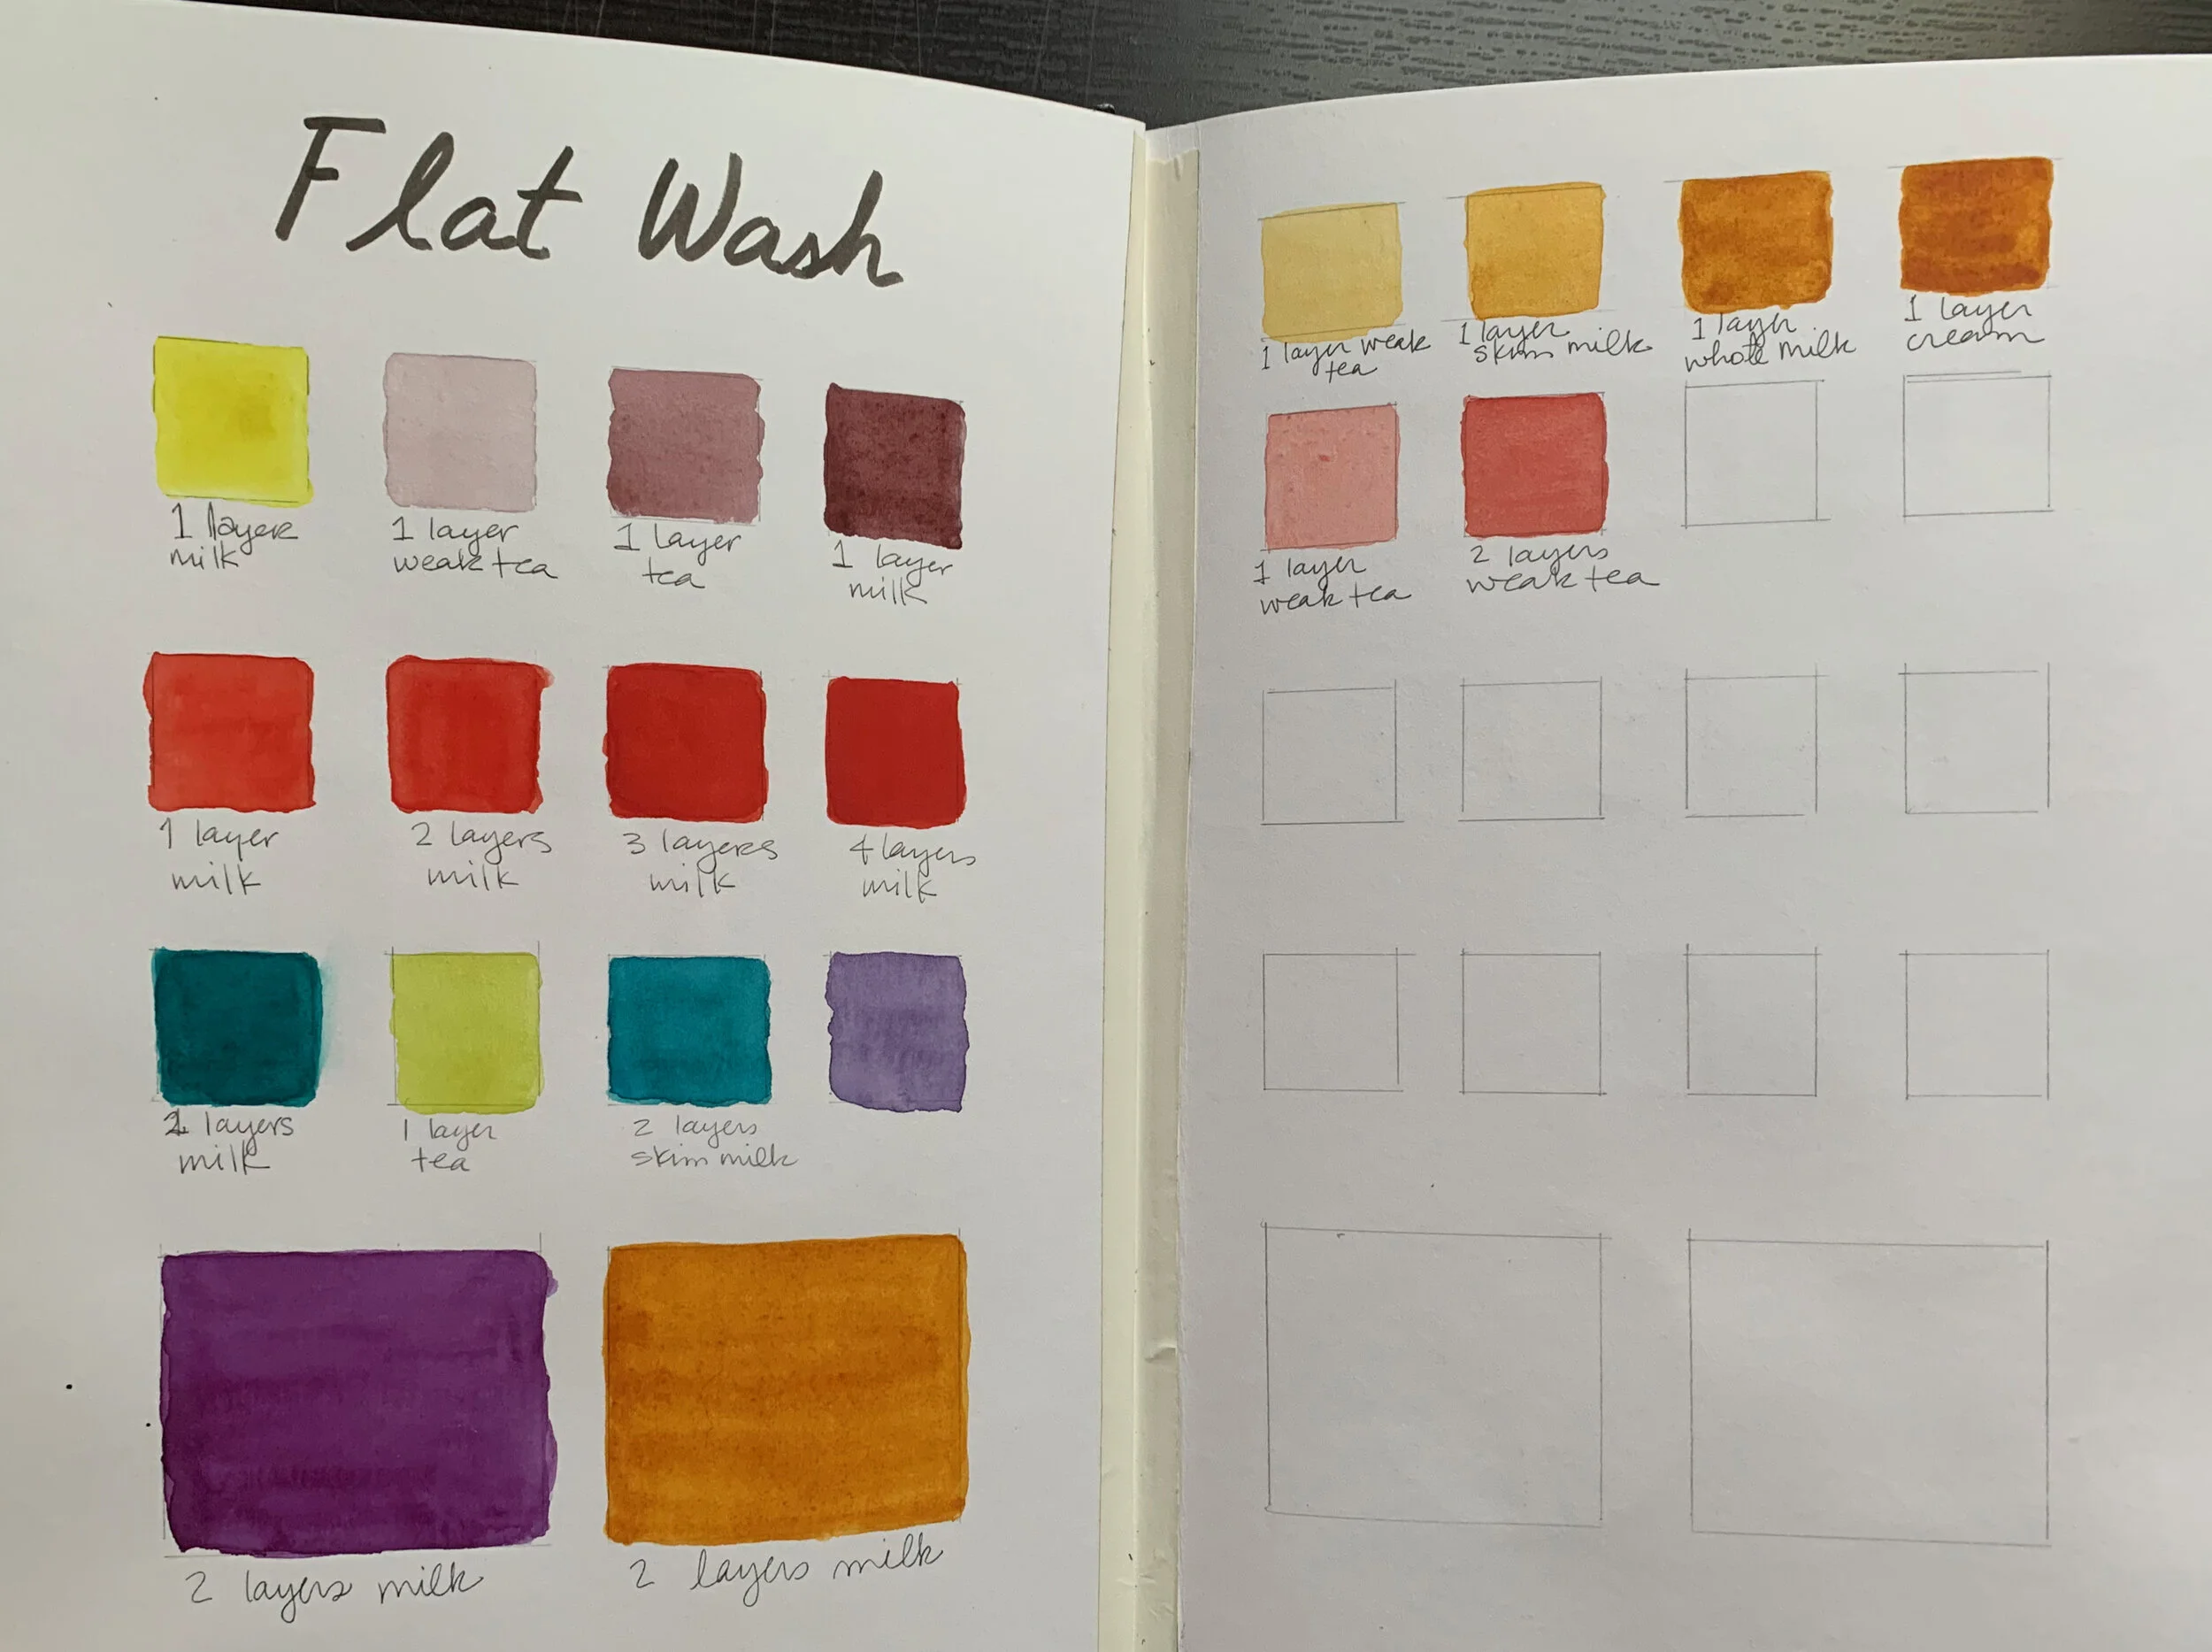 Flat Wash
1 layer
milk
1 layer
weak tea
1 layer
tea
1 layer
milk
1 layer
milk
2 layers
milk
3 layers
milk
4 layers
milk
2 layers
milk
1 layer
tea
2 layers
skim milk
2 layers milk
2 layers milk
1 layer weak
tea
1 layer
skim milk
1 layer
whole milk
1 layer
cream
1 layer
weak tea
2 layers
weak tea